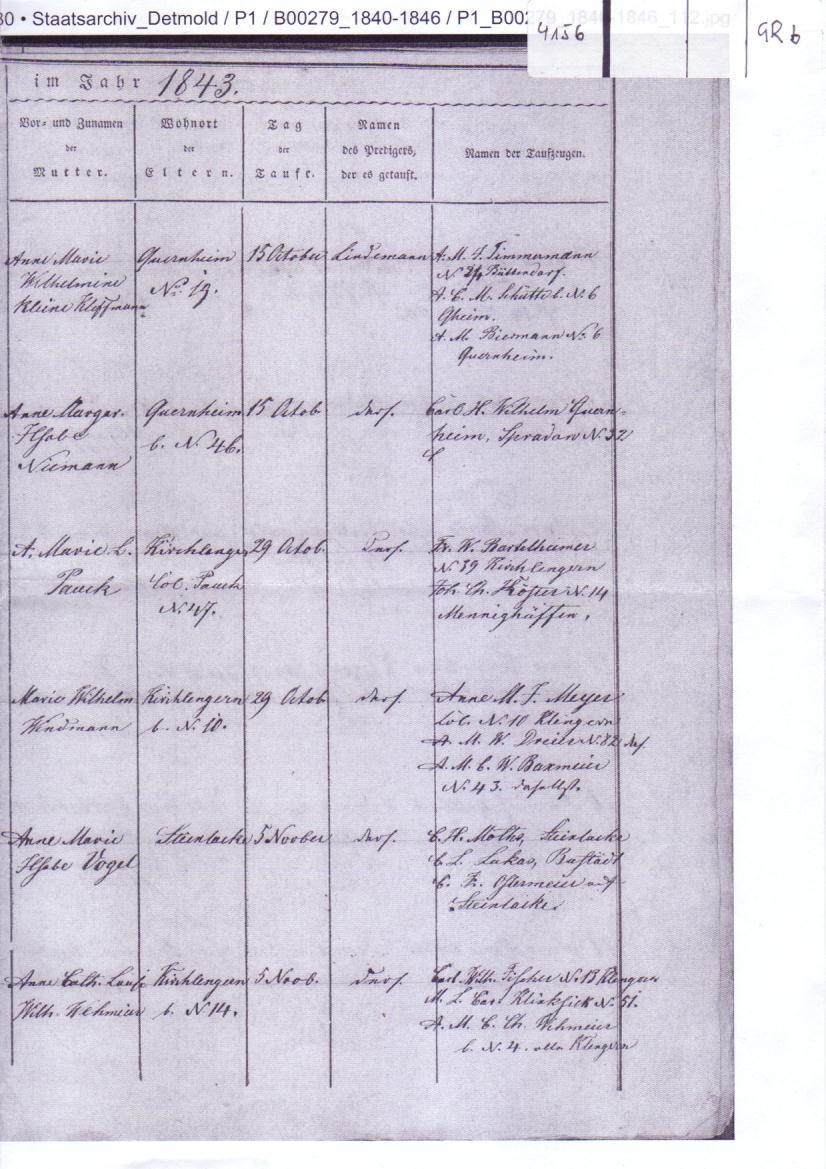 30 • Staatsarchiv_Detmold / P1 / B00279_1840-1846 / P1_B00279_1840-1846_112.jpg
4156
GR b
im Jahr 1843.
Vor- und Zunamen
der
Mutter.
Wohnort
der
Eltern.
Tag
der
Taufe.
Namen
des Predigers,
der es getauft.
Namen der Taufzeugen.
Anne Marie
Wilhelmine
Kleine Kloffmann
Quernheim
No. 19.
15 October
Lindemann
A. M. I. Timmermann
Büttendorf.
A. C. M. Schütte b. N. 6
Qheim.
A. M. Biermann No. 6
Quernheim.
Anne Margar.
Ilsabe
Niemann
Quernheim
b. N 46.
15 Octob.
ders.
Carl H. Wilhelm Quern-
heim, Spradow N. 32
A. Marie L.
Pauck
Kirchlengern
Col. Pauck
N. 47.
29 Octob.
Ders.
Fr. W. Bartelheimer
N 39 Kirchlengern
Joh. Ch. N. 14
Mennighüffen.
Marie Wilhelm.
Windmann
Kirchlengern
b. N. 10.
29 Octob
ders.
Anne M. I. Meyer
Col. N. 10 Klengern
A. M. W. Dreier N. 82 das.
A. M. C. W. Baxmeier
N. 43. daselbst.
Anne Marie
Ilsabe Vogel
Steinlacke
5 November
ders.
C. H. Moths, Steinlacke
C. L. Lukas, Bustädt
C. F. Ostermeier auf
Steinlacke
Anne Cath. Louise
Wilh. Wehmeier
Kirchlengern
b. N 14.
5 Novb.
Ders.
Carl. Wilh. Fischer N. 13 Klengern
M. L. Car. Klinksick N. 51.
A. M. C. Ch. Wehmeier
b. N. 4. alle Klengern